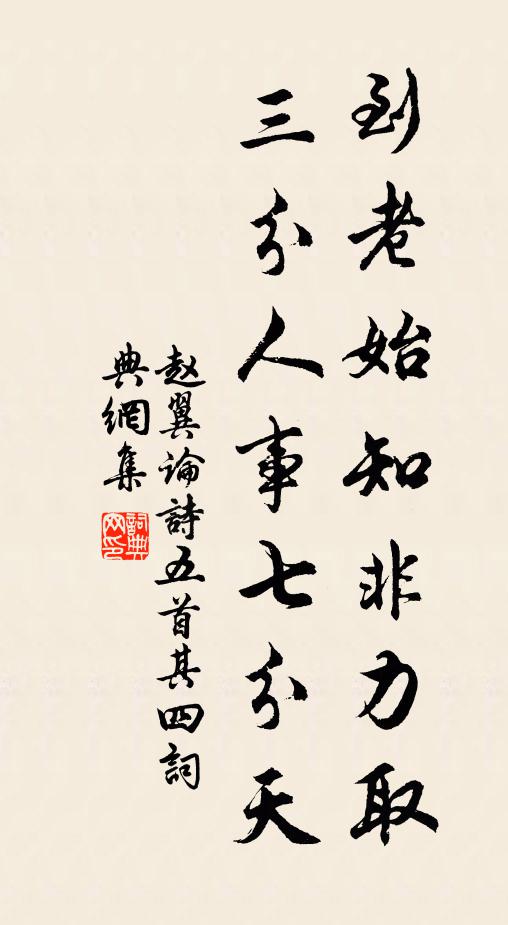 到老始知非力取
三分人事七分天
赵翼论詩五首其四詞
典網集
詞典網印